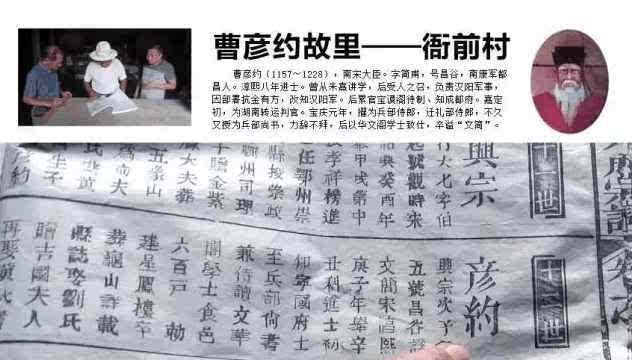 曹彦约故里——衙前村
曹彦约（1157～1228），南宋大臣。字简甫，号昌谷，南康军都
昌人。淳熙八年进士。曾从朱熹讲学，后受人之召，负责汉阳军事，
因部署抗金有方，改知汉阳军。后累官宝谟阁待制、知成都府。嘉定
初，为湖南转运判官。宝庆元年，擢为兵部侍郎，迁礼部侍郎，不久
又授为兵部尚书，力辞不拜，后以华文阁学士致仕，卒谥“文简”。
興宗
行大七字伯
起號觀時宋
興癸酉年
甲戌第中
李祥榜進
任鄂州崇
縣授崇政
鄂州司理
十贈金紫
大夫葬
五峯山
彦約
興宗次子
五號昌谷
文簡宋淳熙
庚子年舉辛
丑科進士初
寧國府士
王兵部尚書
兼侍讀文華
閣學士食邑
六百戸 勅
建星鳳樓卒
葬龍山詳載
縣誌娶劉氏
贈吉國夫人
再娶黄氏